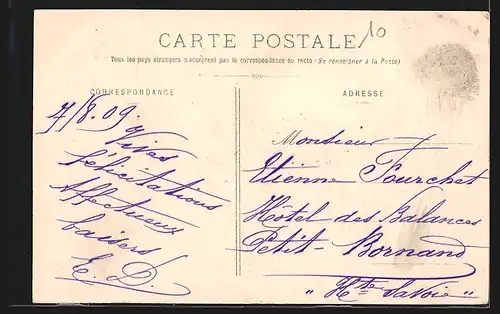 CARTE POSTALE
10
Tous les pays étrangers n'acceptent pas la correspondance au recto (Se renseigner à la Poste)
CORRESPONDANCE
ADRESSE
7/8.09.
Vives
félicitations
Affectueux
baisers
E. D.
Monsieur
Etienne Fourchet
Hôtel des Balances
Petit-Bornand
"Hte Savoie"